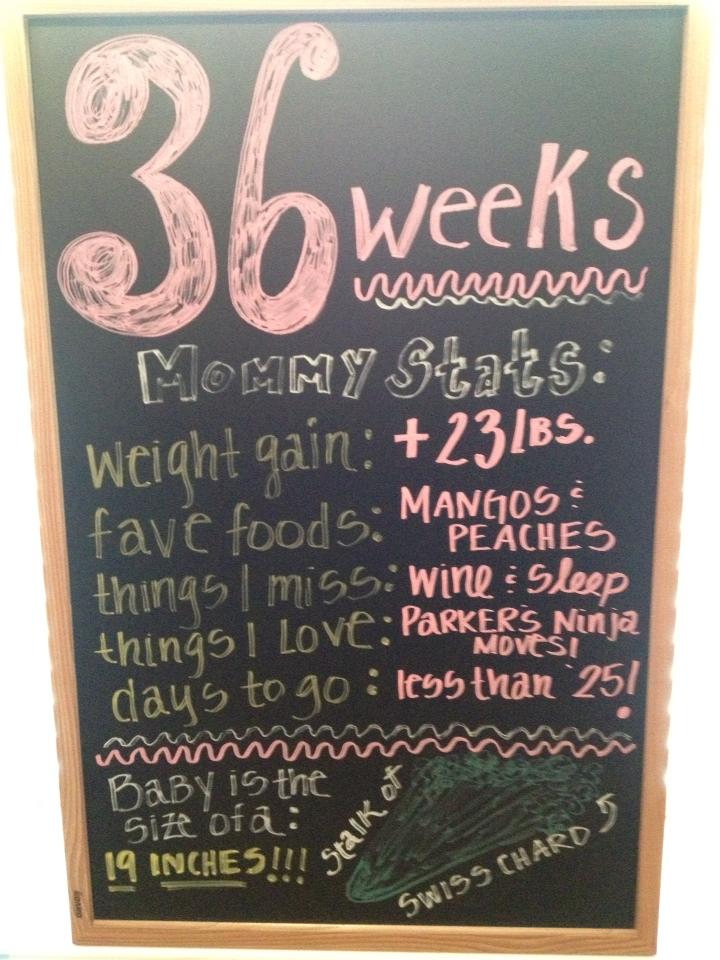 36 weeks
Mommy Stats:
weight gain: +23 lbs.
fave foods: MANGOS &
PEACHES
things I miss: Wine & Sleep
things I Love: PARKER'S Ninja
MOVES!
days to go: less than 25!
Baby is the
size of a:
19 INCHES!!!
Stalk of
SWISS CHARD